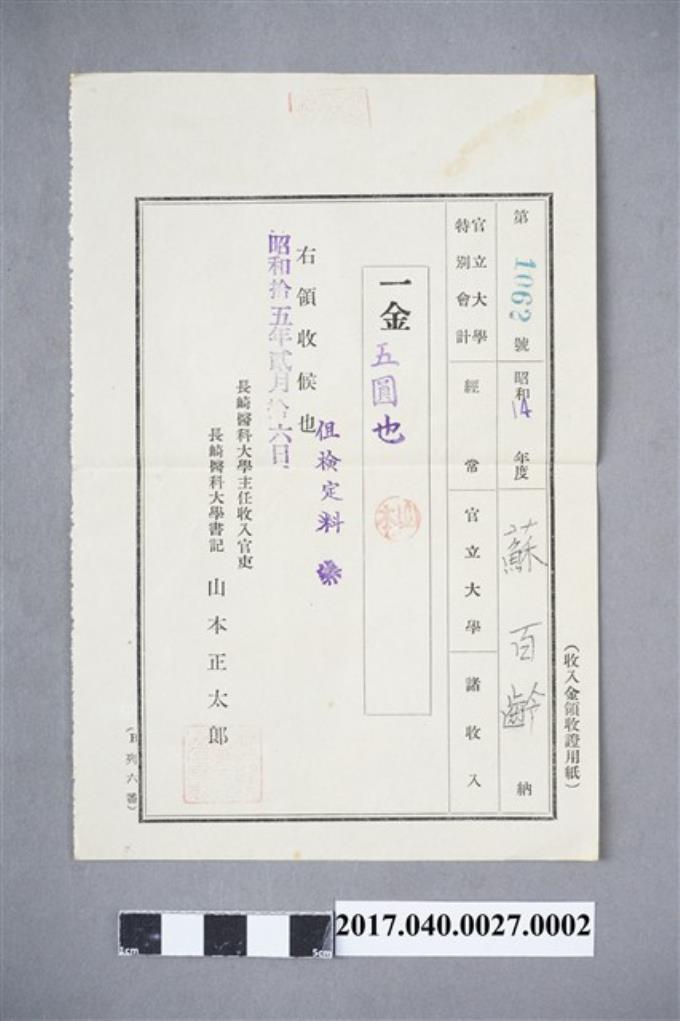 (收入金領收證用紙)
第1062號 昭和14年度 蘇百齡 納
官立大學特別會計 經常 官立大學 諸收入
一金五圓也
但檢定料
右領收候也
昭和拾五年貳月拾六日
長崎醫科大學主任收入官吏
長崎醫科大學書記 山本正太郎
(B列六番)
1cm 5cm
2017.040.0027.0002